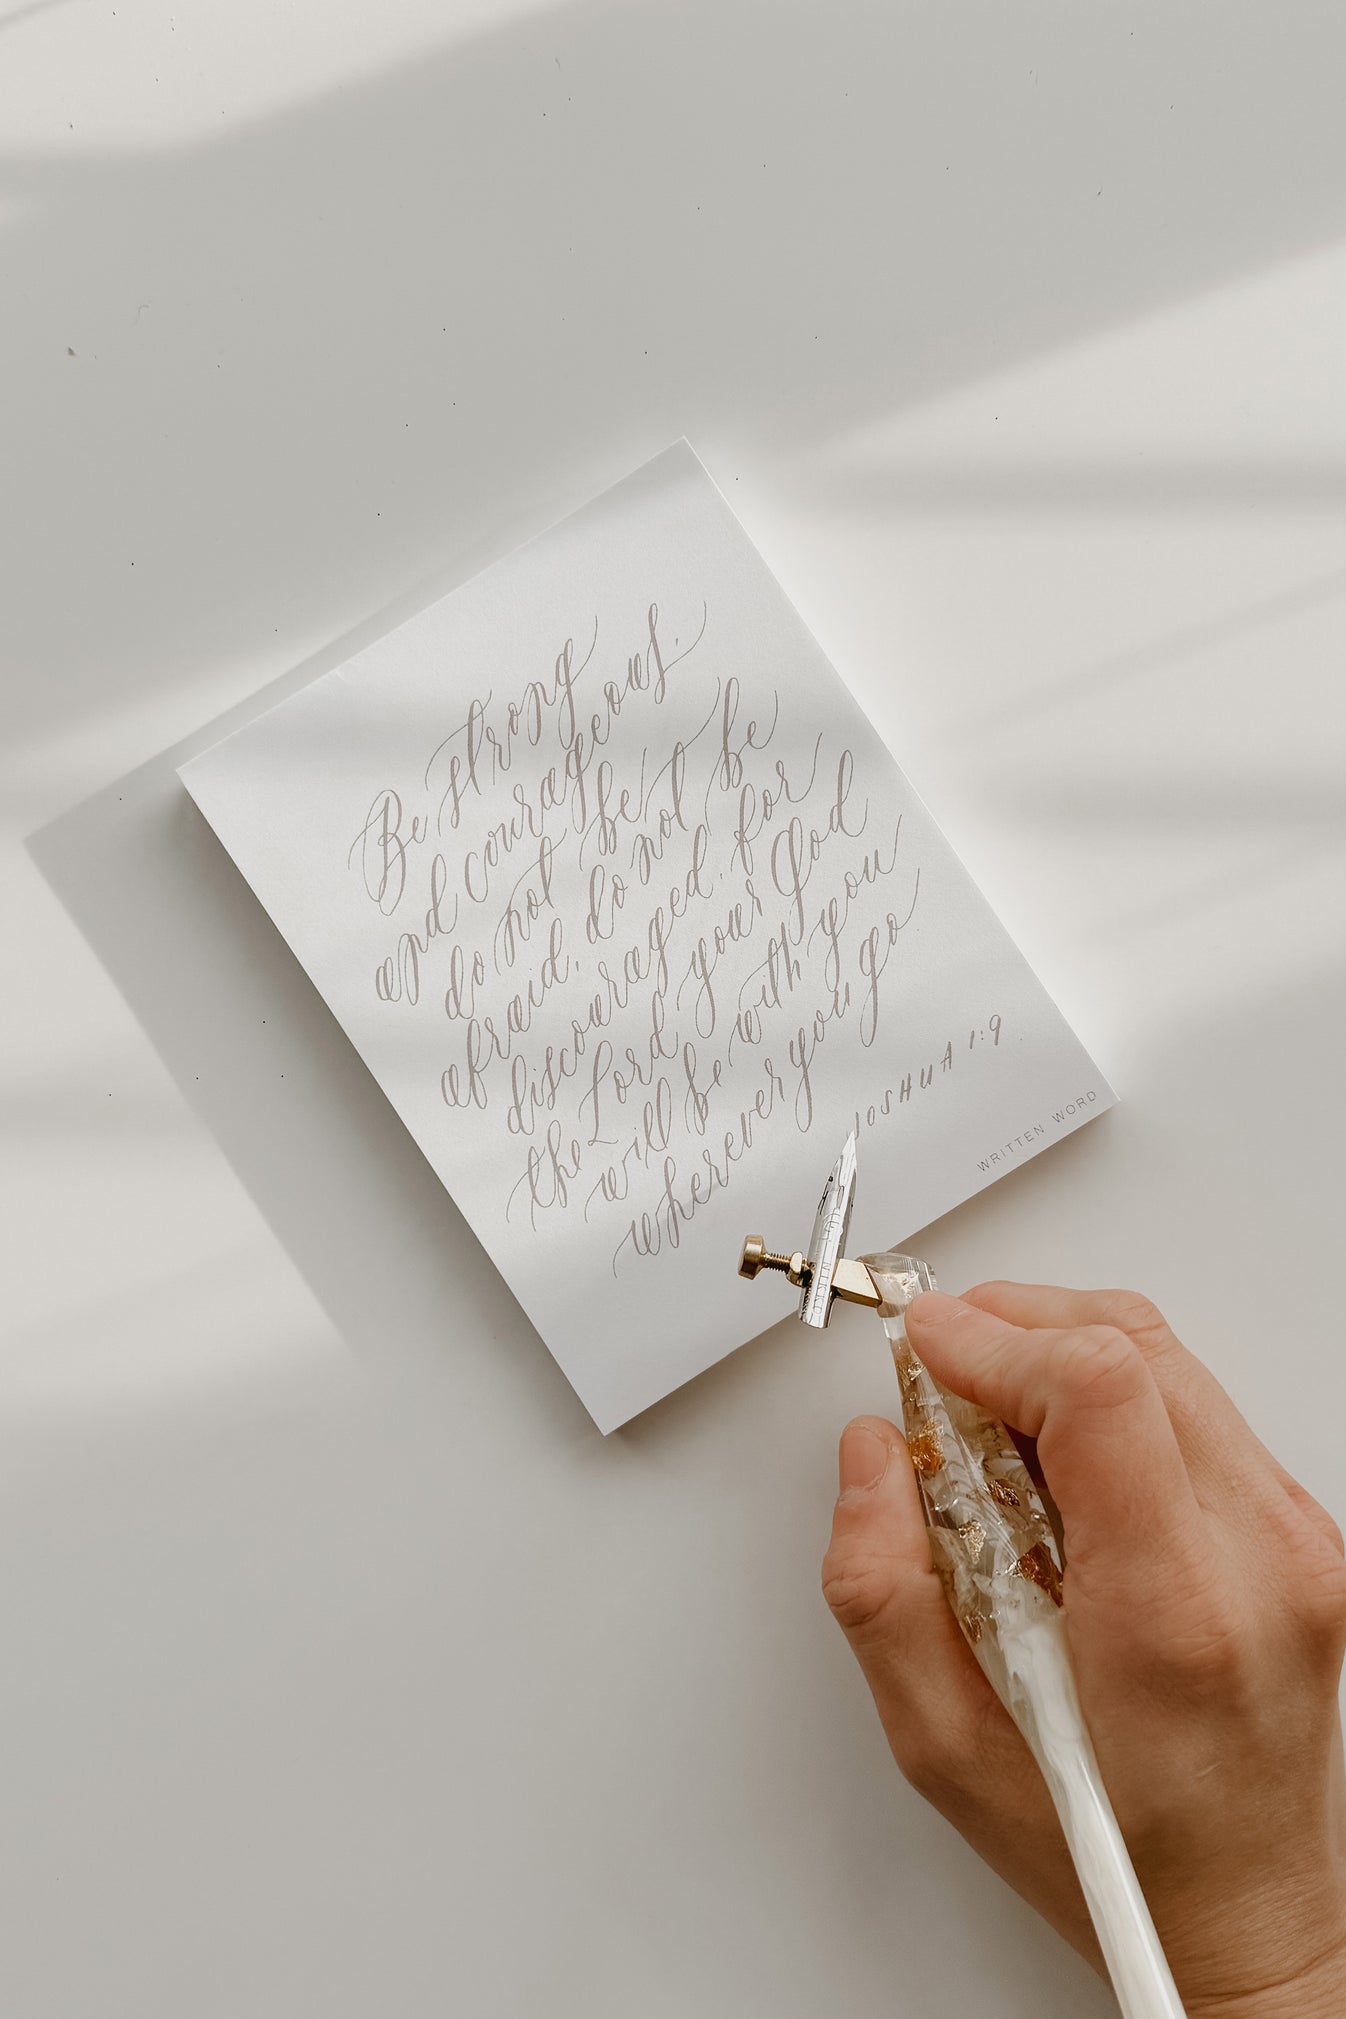 Be strong
and courageous.
do not be
afraid, do not be
discouraged, for
the Lord your God
will be with you
wherever you go
JOSHUA 1:9
WRITTEN WORD
NIKKO